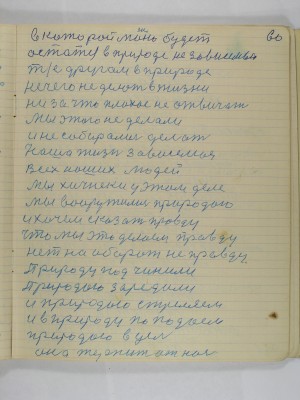 60
в которой жизнь будет
остатся в природе не зависемый
т/е другом в природе
нечего не делют в жизни
ни за что плохое не отвичат
Мы этого не делали
и не собирались делат
Наша жизн зависемая
Всех наших людей
мы хичники у этом деле
мы вооружилис природаю
и хочим сказат правду
что мы это делаем правду
нет на оборот не правду
природу под чинили
природаю зарежали
и природаю стреляем
и в природу попадаем
природаю в цел
она терпит от нас